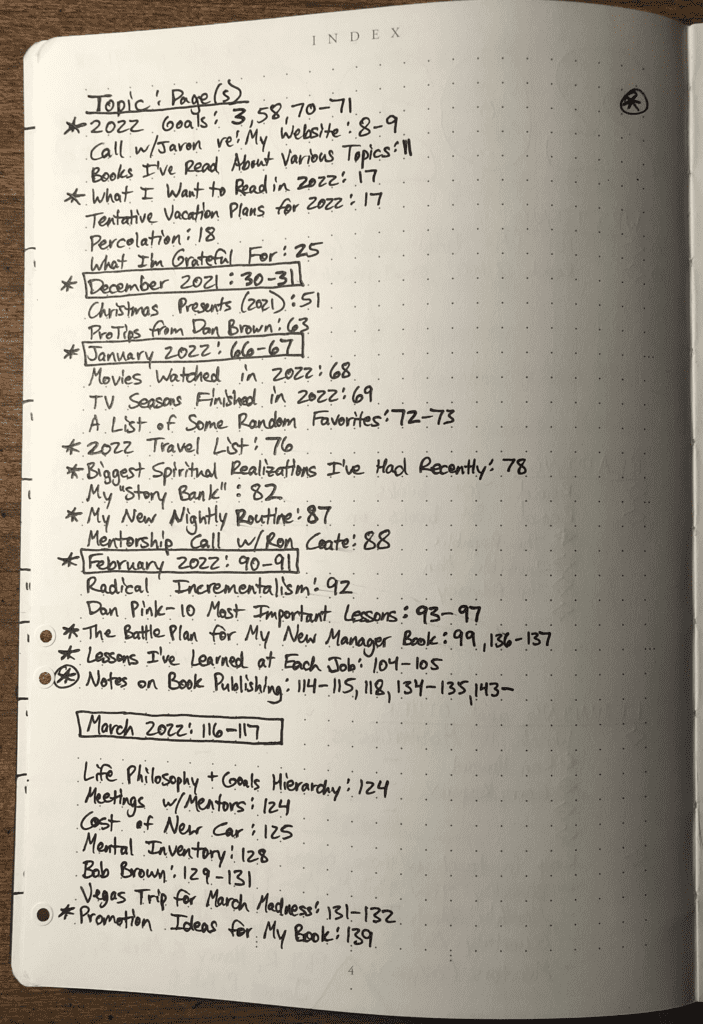 INDEX
Topic: Page(s)
* 2022 Goals: 3, 58, 70-71
Call w/Jaron re: My Website: 8-9
Books I've Read About Various Topics: 11
* What I Want to Read in 2022: 17
Tentative Vacation Plans for 2022: 17
Percolation: 18
What I'm Grateful For: 25
* December 2021: 30-31
Christmas Presents (2021): 51
ProTips from Dan Brown: 63
* January 2022: 66-67
Movies Watched in 2022: 68
TV Seasons Finished in 2022: 69
A List of Some Random Favorites: 72-73
* 2022 Travel List: 76
* Biggest Spiritual Realizations I've Had Recently: 78
My "Story Bank": 82
* My New Nightly Routine: 87
Mentorship Call w/Ron Coate: 88
* February 2022: 90-91
Radical Incrementalism: 92
Dan Pink-10 Most Important Lessons: 93-97
* The Battle Plan for My New Manager Book: 99, 136-137
* Lessons I've Learned at Each Job: 104-105
* Notes on Book Publishing: 114-115, 118, 134-135, 143-
March 2022: 116-117
Life Philosophy + Goals Hierarchy: 124
Meetings w/Mentors: 124
Cost of New Car: 125
Mental Inventory: 128
Bob Brown: 129-131
Vegas Trip for March Madness: 131-132
* Promotion Ideas for My Book: 139
4